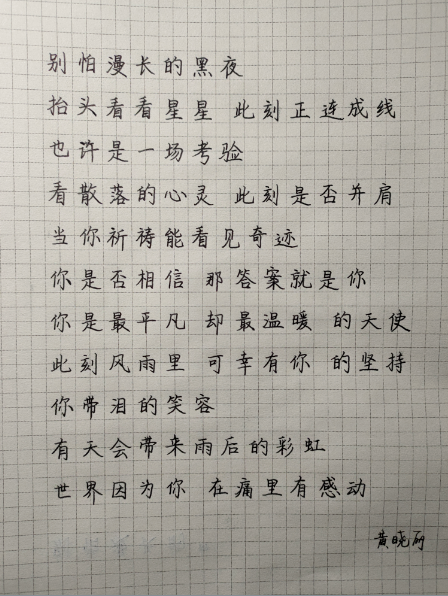 别怕漫长的黑夜
抬头看看星星 此刻正连成线
也许是一场考验
看散落的心灵 此刻是否并肩
当你祈祷能看见奇迹
你是否相信 那答案就是你
你是最平凡 却最温暖 的天使
此刻风雨里 可幸有你 的坚持
你带泪的笑容
有天会带来雨后的彩虹
世界因为你 在痛里有感动
黄晓丽